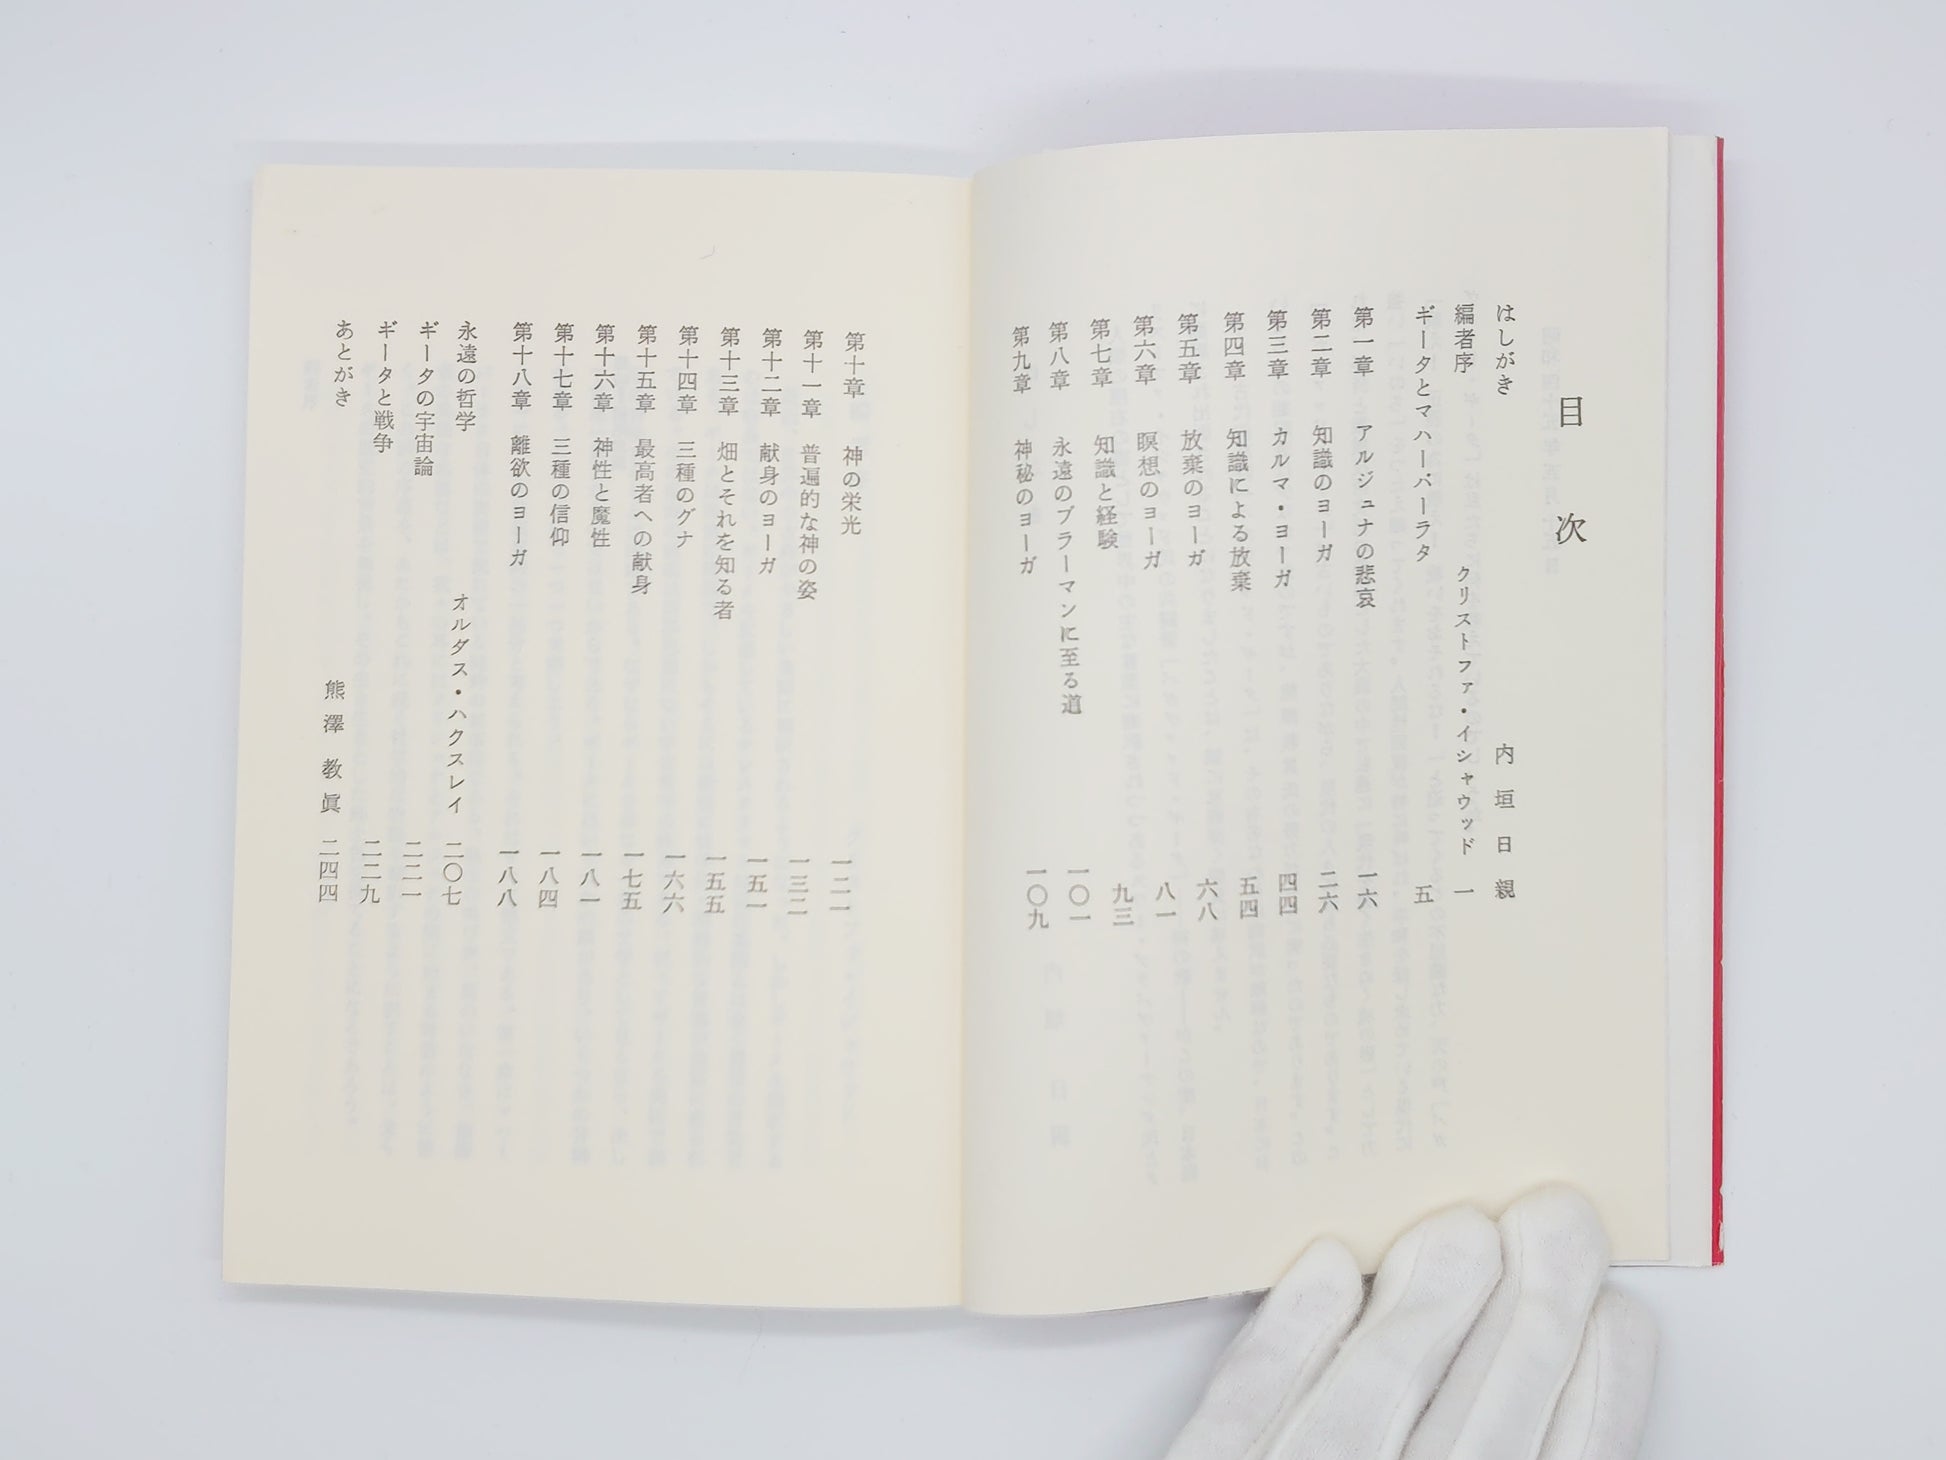 目次
はしがき 内垣日親
編者序 クリストファ・イシャウッド 一
ギータとマハー・バーラタ 五
第一章 アルジュナの悲哀 一六
第二章 知識のヨーガ 二六
第三章 カルマ・ヨーガ 四四
第四章 知識による放棄 五四
第五章 放棄のヨーガ 六八
第六章 瞑想のヨーガ 八一
第七章 知識と経験 九三
第八章 永遠のブラーマンに至る道 一〇一
第九章 神秘のヨーガ 一〇九
第十章 神の栄光 一二一
第十一章 普遍的な神の姿 一三二
第十二章 献身のヨーガ 一五一
第十三章 畑とそれを知る者 一五五
第十四章 三種のグナ 一六六
第十五章 最高者への献身 一七五
第十六章 神性と魔性 一八一
第十七章 三種の信仰 一八四
第十八章 離欲のヨーガ 一八八
永遠の哲学 オルダス・ハクスレイ 二〇七
ギータの宇宙論 二二一
ギータと戦争 二二九
あとがき 熊澤教眞 二四四